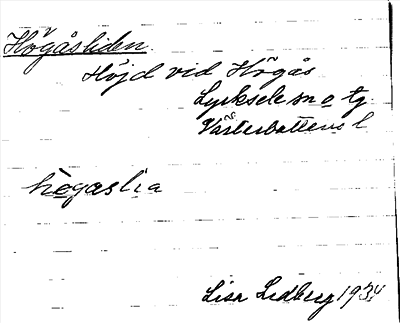 Högåsliden
Höjd vid Högås
Lycksele sn o tg
Västerbottens l
högaslia
Lisa Lidberg 1934